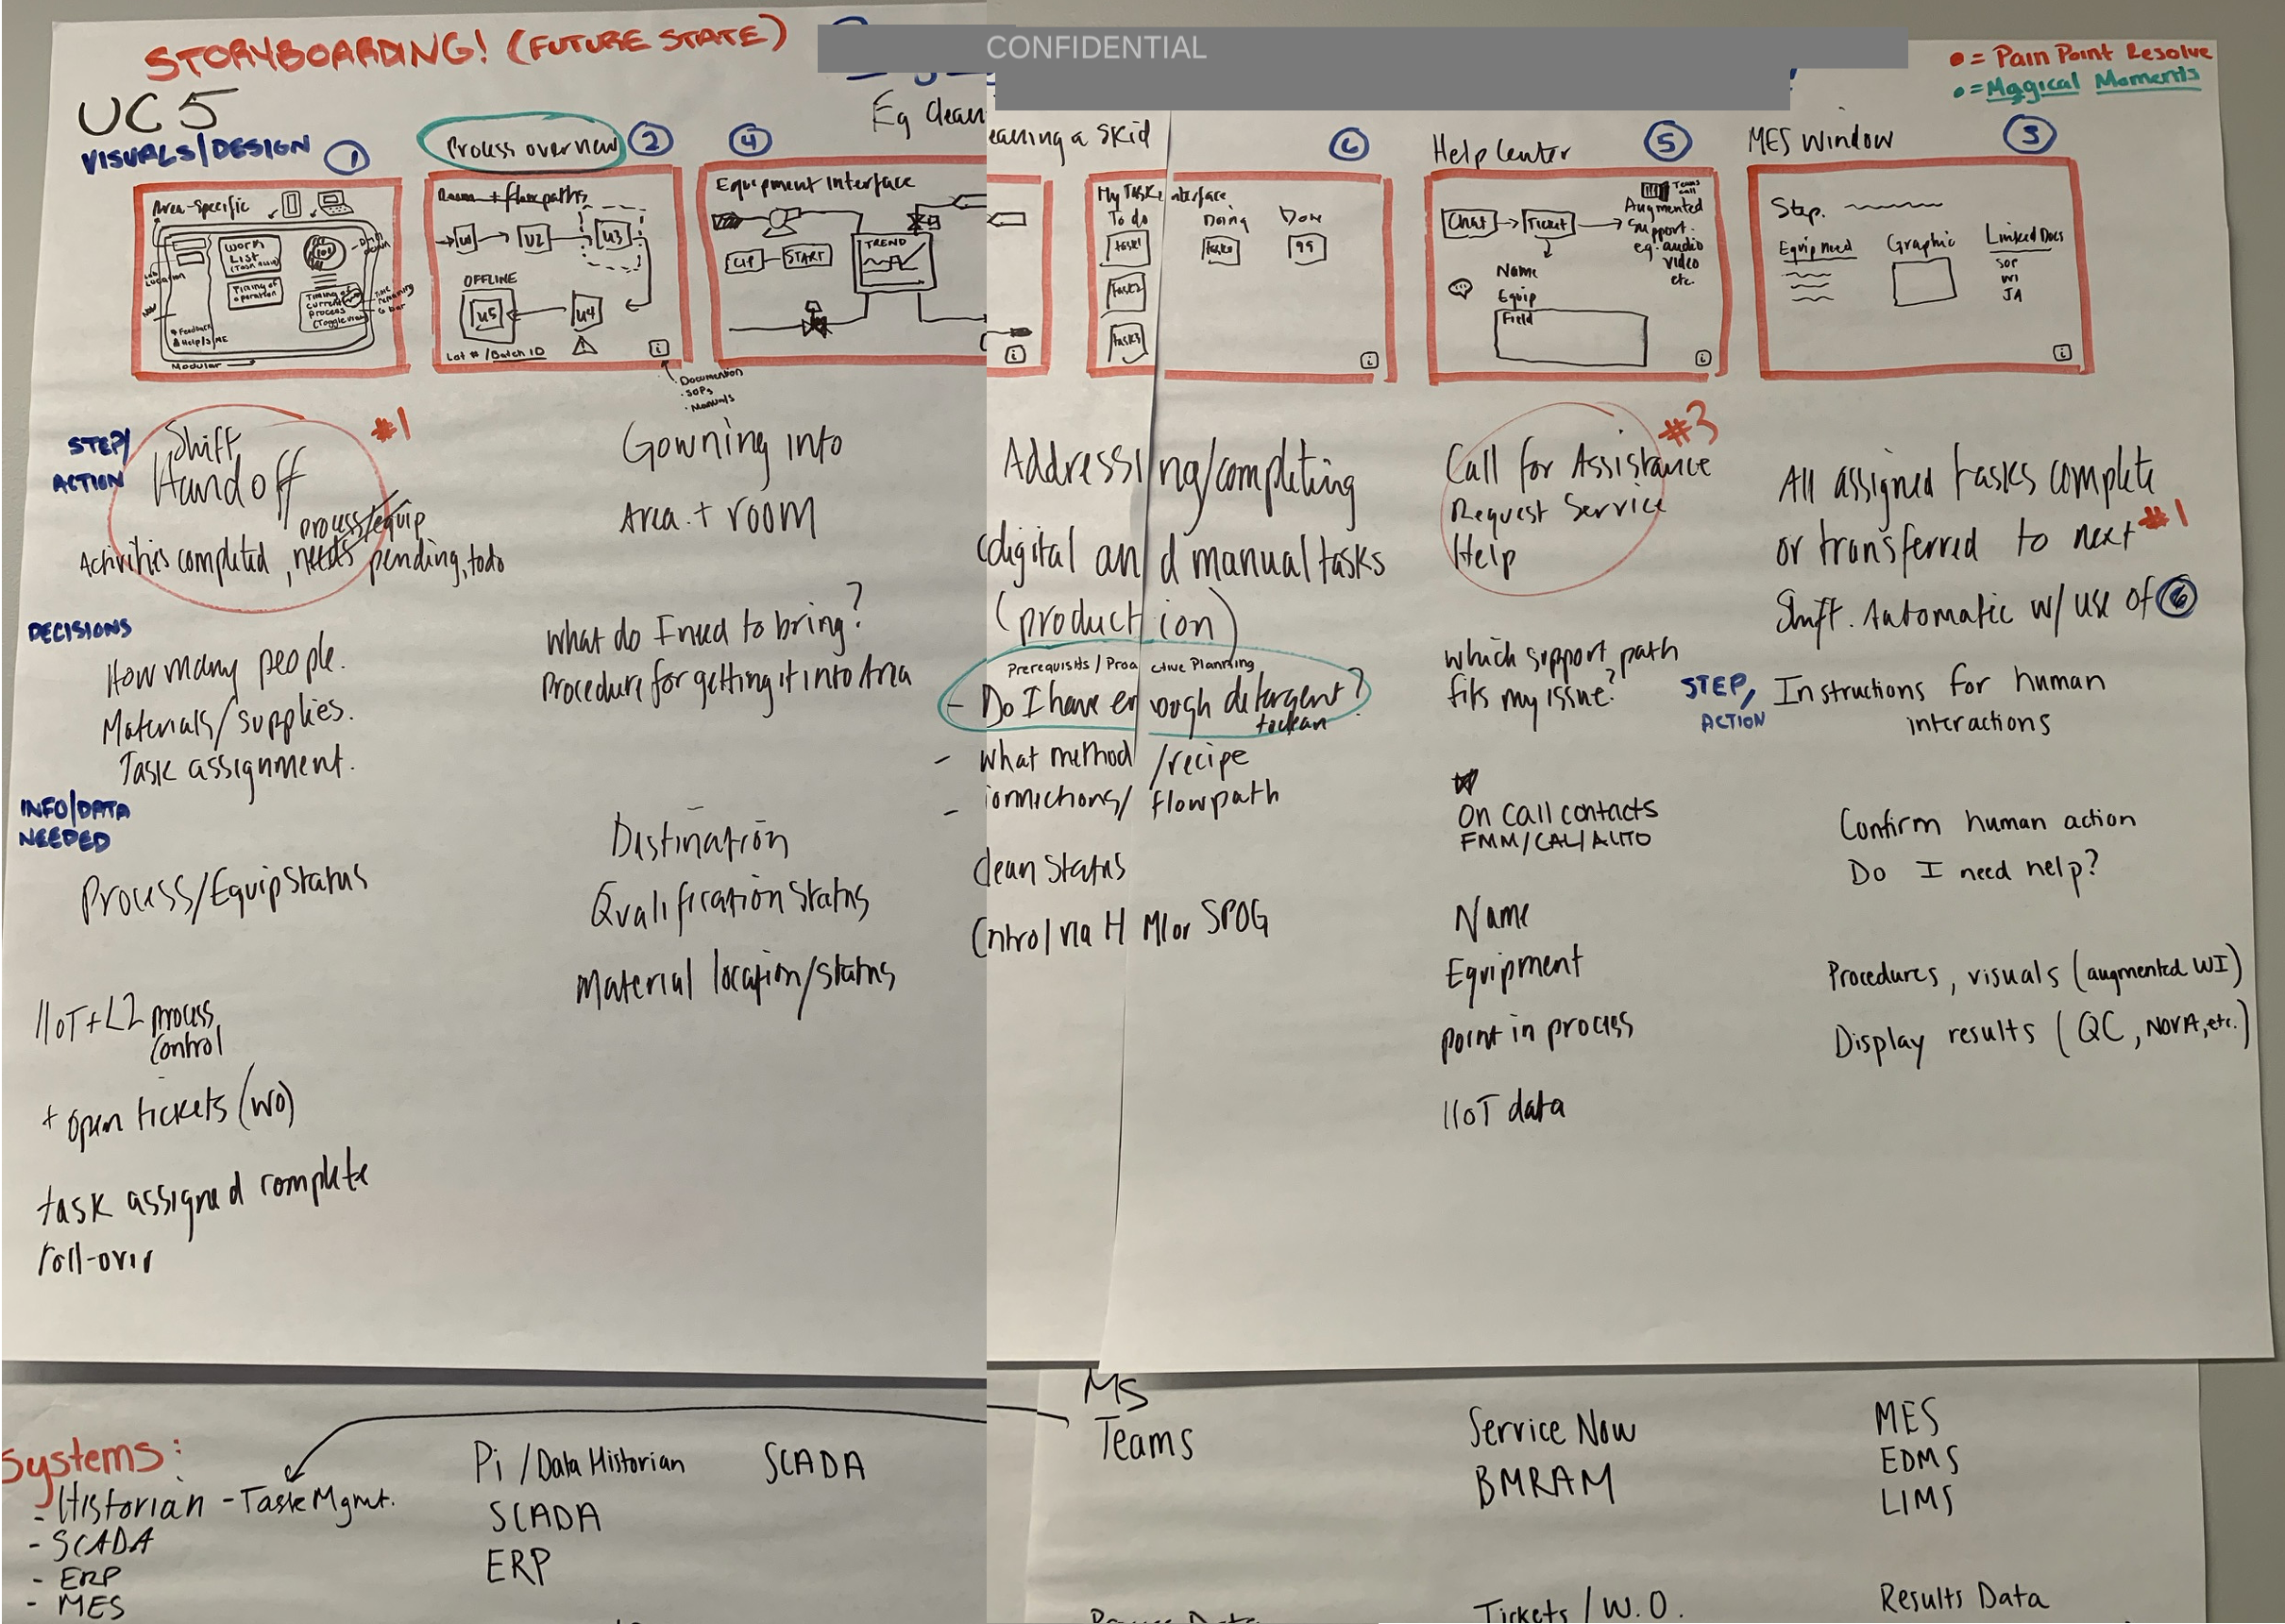 STORYBOARDING! (FUTURE STATE)
CONFIDENTIAL
• = Pain Point Resolve
• = Magical Moments
UC 5
Eg Clean
eaning a skid
VISUALS/DESIGN
1
Process overview
2
4
6
Help Center
5
MES Window
3
Area-Specific
WORK
LIST
(Task assign)
Timing of
operation
Timing of
current
process
(Toggle view)
Location
Feedback
Help/SME
Modular
Room + flow paths
U1
U2
U3
OFFLINE
U5
U4
Lot # / Batch ID
i
Documention
• SOPs
• Manuals
Equipment Interface
CIP
START
TREND
i
My Task interface
To do
Doing
Done
Task1
Task2
Task3
99
i
Chat
Ticket
Teams
call
Augmented
Support.
eg. audio
video
etc.
Name
Equip
Field
i
Step.
Equip Need
Graphic
Linked Docs
SOP
WI
JA
i
STEP/
ACTION
Shift
Handoff
#1
process/equip
Activities completed, needs pending, todo
Gowning into
Area + room
Addressing/completing
(digital and manual tasks
(production)
Call for Assistance
#3
Request Service
Help
All assigned tasks complete
or transferred to next #1
Shift. Automatic w/ use of 6
DECISIONS
How many people.
Materials/supplies.
Task assignment.
What do I need to bring?
Procedure for getting it into Area
Prerequisits / Proactive Planning
- Do I have enough detergent?
to clean
- what method/recipe
- connections/flowpath
which support path
fits my issue?
STEP/
ACTION
Instructions for human
interactions
INFO/DATA
NEEDED
Process/Equip Status
IIoT + L2 process
control
+ open tickets (WO)
task assigned complete
roll-over
Destination
Qualification Status
Material location/status
Clean Status
Control via HMI or SPOG
On Call contacts
FMM/CAL/AUTO
Name
Equipment
point in process
IIoT data
Confirm human action
Do I need help?
Procedures, visuals (augmented WI)
Display results (QC, NOVA, etc.)
Systems:
- Historian - Task Mgmt.
- SCADA
- ERP
- MES
Pi / Data Historian
SCADA
ERP
SCADA
MS
Teams
Service Now
BMRAM
MES
EDMS
LIMS
Tickets / W.O.
Results Data